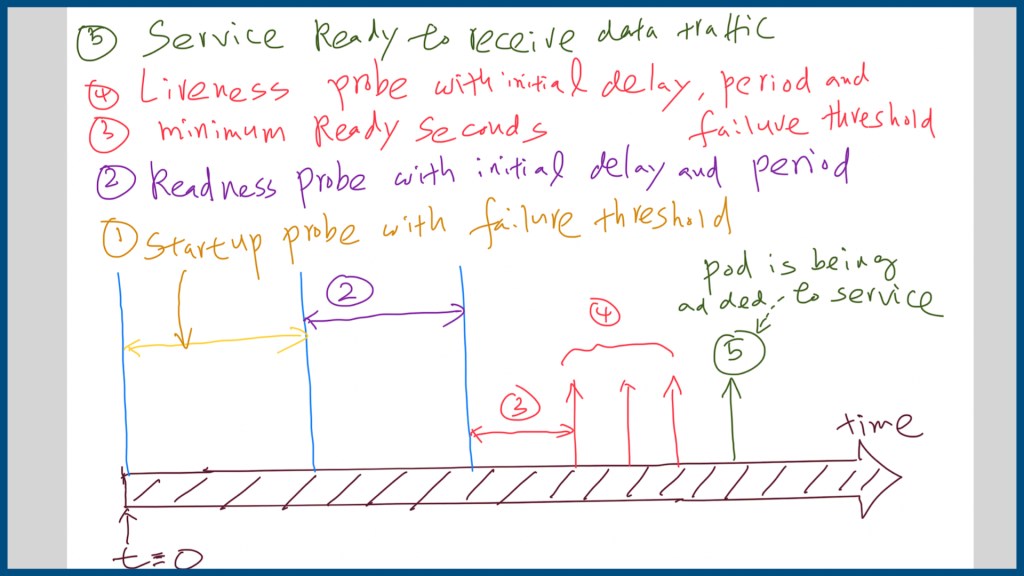 ⑤ Service Ready to receive data traffic
④ Liveness probe with initial delay, period and
failure threshold
③ minimum Ready Seconds
② Readness probe with initial delay and period
① Startup probe with failure threshold
②
pod is being
added to service
④
⑤
③
time
t=0